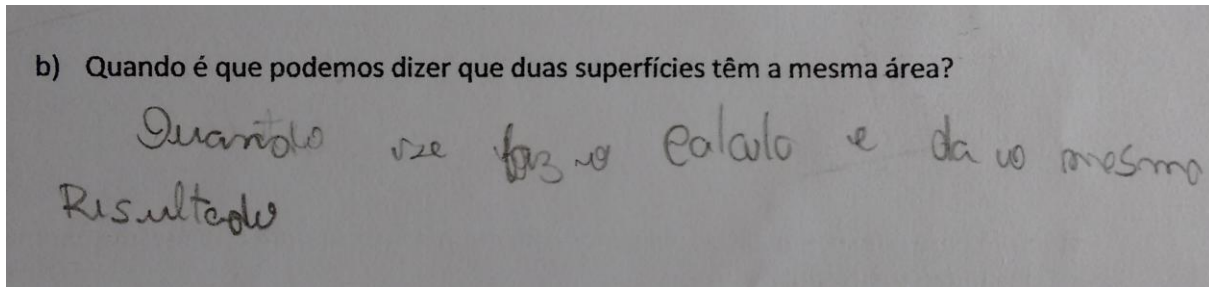 b) Quando é que podemos dizer que duas superfícies têm a mesma área?
Quando se faz o Calculo e da o mesmo
Resultado